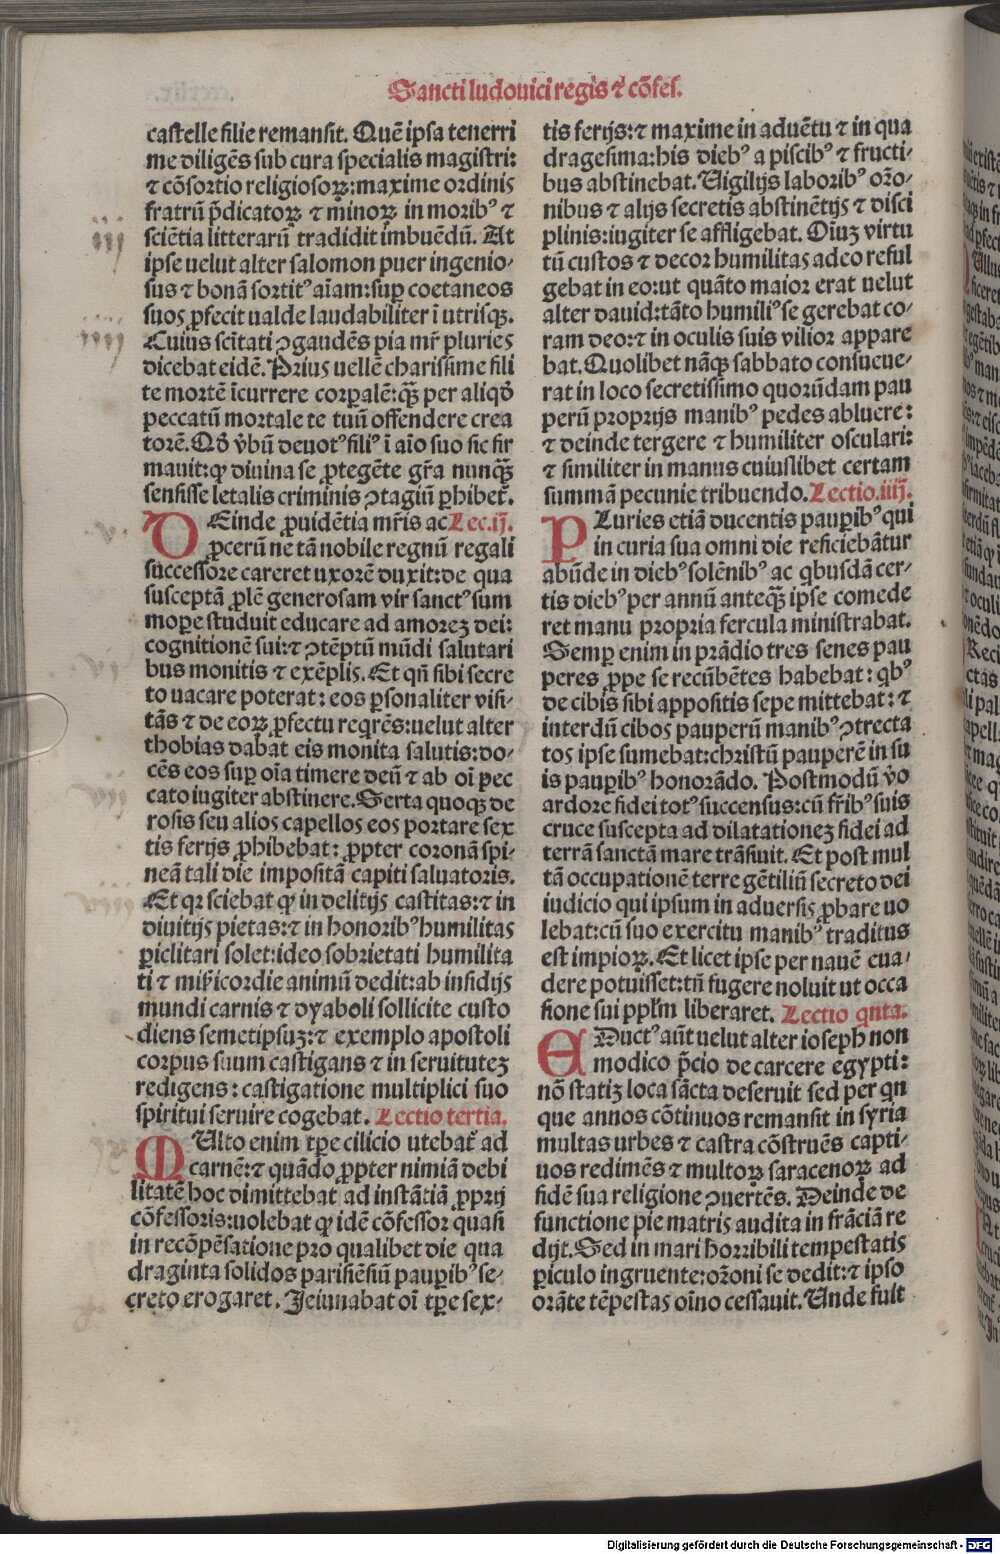 Sancti ludouici regis ⁊ cõfes.
castelle filie remansit. Quẽ ipsa tenerri
me diligẽs sub cura specialis magistri:
⁊ cõsortio religiosoꝝ: maxime ordinis
fratrũ p̃dicatoꝝ ⁊ minoꝝ in moribꝰ ⁊
sciẽtia litterarũ tradidit imbuẽdũ. At
ipse uelut alter salomon puer ingenio-
sus ⁊ bonã sortitꝰ aĩam: sup̱ coetaneos
suos ꝓfecit ualde laudabiliter ĩ utrisqꝫ.
Cuius scĩtati ꝯgaudẽs pia mr̃ pluries
dicebat eidẽ. Prius uellẽ charissime fili
te mortẽ ĩcurrere corp̱alẽ: qꝫ̃ per aliqđ
peccatũ mortale te tuũ offendere crea
torẽ. Qđ v̓bũ deuotꝰ filiꝰ ĩ aĩo suo sic fir
mauit: ꝙ diuina se ꝓtegẽte gr̃a nunqꝫ̃
sensisse letalis criminis ꝯtagiũ p̱hibet̃.
DEinde ꝓuidẽtia mr̃is ac Lec.ij.
ꝓcerũ ne tã nobile regnũ regali
successore careret uxorẽ duxit: de qua
susceptã ꝓlẽ generosam vir sanctꝰ sum
mop̱e studuit educare ad amorez dei:
cognitionẽ sui: ⁊ ꝯtẽptũ mũdi salutari
bus monitis ⁊ exẽplis. Et qñ sibi secre
to uacare poterat: eos p̱sonaliter visi-
tãs ⁊ de eoꝝ ꝓfectu reqrẽs: uelut alter
thobias dabat eis monita salutis: do-
cẽs eos sup̱ oĩa timere deũ ⁊ ab oĩ pec
cato iugiter abstinere. Serta quoqꝫ de
rosis seu alios capellos eos portare sex
tis ferijs ꝓhibebat: ꝓpter coronã spi-
neã tali die impositã capiti saluatoris.
Et qꝛ sciebat ꝙ in delitijs castitas: ⁊ in
diuitijs pietas: ⁊ in honoribꝰ humilitas
p̱iclitari solet: ideo sobrietati humilita
ti ⁊ mĩsicordie animũ dedit: ab insidijs
mundi carnis ⁊ dyaboli sollicite custo
diens semetipsuꝫ: ⁊ exemplo apostoli
corpus suum castigans ⁊ in seruitutez
redigens: castigatione multiplici suo
spiritui seruire cogebat. Lectio tertia.
MUlto enim tp̱e cilicio utebat̃ ad
carnẽ: ⁊ quãdo ꝓpter nimiã debi
litatẽ hoc dimittebat ad instãtiã ꝓprij
cõfessoris: uolebat ꝙ idẽ cõfessor quasi
in recõpẽsatione pro qualibet die qua
draginta solidos parisiẽsiũ paup̱ibꝰ se-
creto erogaret. Jeiunabat oĩ tp̱e sex-
tis ferijs: ⁊ maxime in aduẽtu ⁊ in qua
dragesima: his diebꝰ a piscibꝰ ⁊ fructi-
bus abstinebat. Uigilijs laboribꝰ oꝛ̃o-
nibus ⁊ alijs secretis abstinẽtijs ⁊ disci
plinis: iugiter se affligebat. Oĩuꝫ virtu
tũ custos ⁊ decor humilitas adeo reful
gebat in eo: ut quãto maior erat uelut
alter dauid: tãto humiliꝰ se gerebat co-
ram deo: ⁊ in oculis suis vilior appare
bat. Quolibet nãqꝫ sabbato consueue-
rat in loco secretissimo quorũdam pau
perũ proprijs manibꝰ pedes abluere:
⁊ deinde tergere ⁊ humiliter osculari:
⁊ similiter in manus cuiuslibet certam
summã pecunie tribuendo. Lectio.iiij.
PLuries etiã ducentis paup̱ibꝰ qui
in curia sua omni die reficiebãtur
abũde in diebꝰ solẽnibꝰ ac qbusdã cer-
tis diebꝰ per annũ anteqꝫ̃ ipse comede
ret manu propria fercula ministrabat.
Semp̱ enim in prãdio tres senes pau
peres ꝓpe se recũbẽtes habebat: qbꝰ
de cibis sibi appositis sepe mittebat: ⁊
interdũ cibos pauperũ manibꝰ ꝯtrecta
tos ipse sumebat: christũ pauperẽ in su
is paup̱ibꝰ honorãdo. Postmodũ v̓o
ardore fidei totꝰ succensus: cũ fr̃ibꝰ suis
cruce suscepta ad dilatationeꝫ fidei ad
terrã sanctã mare trãsiuit. Et post mul
tã occupationẽ terre gẽtiliũ secreto dei
iudicio qui ipsum in aduersis ꝓbare uo
lebat: cũ suo exercitu manibꝰ traditus
est impioꝝ. Et licet ipse per nauẽ eua-
dere potuisset: tñ fugere noluit ut occa
sione sui pp̃lm liberaret. Lectio qnta.
EDuctꝰ aũt uelut alter ioseph non
modico p̃cio de carcere egypti:
nõ statiꝫ loca sãcta deseruit sed per qn
que annos cõtinuos remansit in syria
multas urbes ⁊ castra cõstruẽs capti-
uos redimẽs ⁊ multoꝝ saracenoꝝ ad
fidẽ sua religione ꝯuertẽs. Deinde de
functione pie matris audita in frãciã re
dijt. Sed in mari horribili tempestatis
p̱iculo ingruente: oꝛ̃oni se dedit: ⁊ ipso
orãte tẽpestas oĩno cessauit. Unde fuit
Digitalisierung gefördert durch die Deutsche Forschungsgemeinschaft - DFG